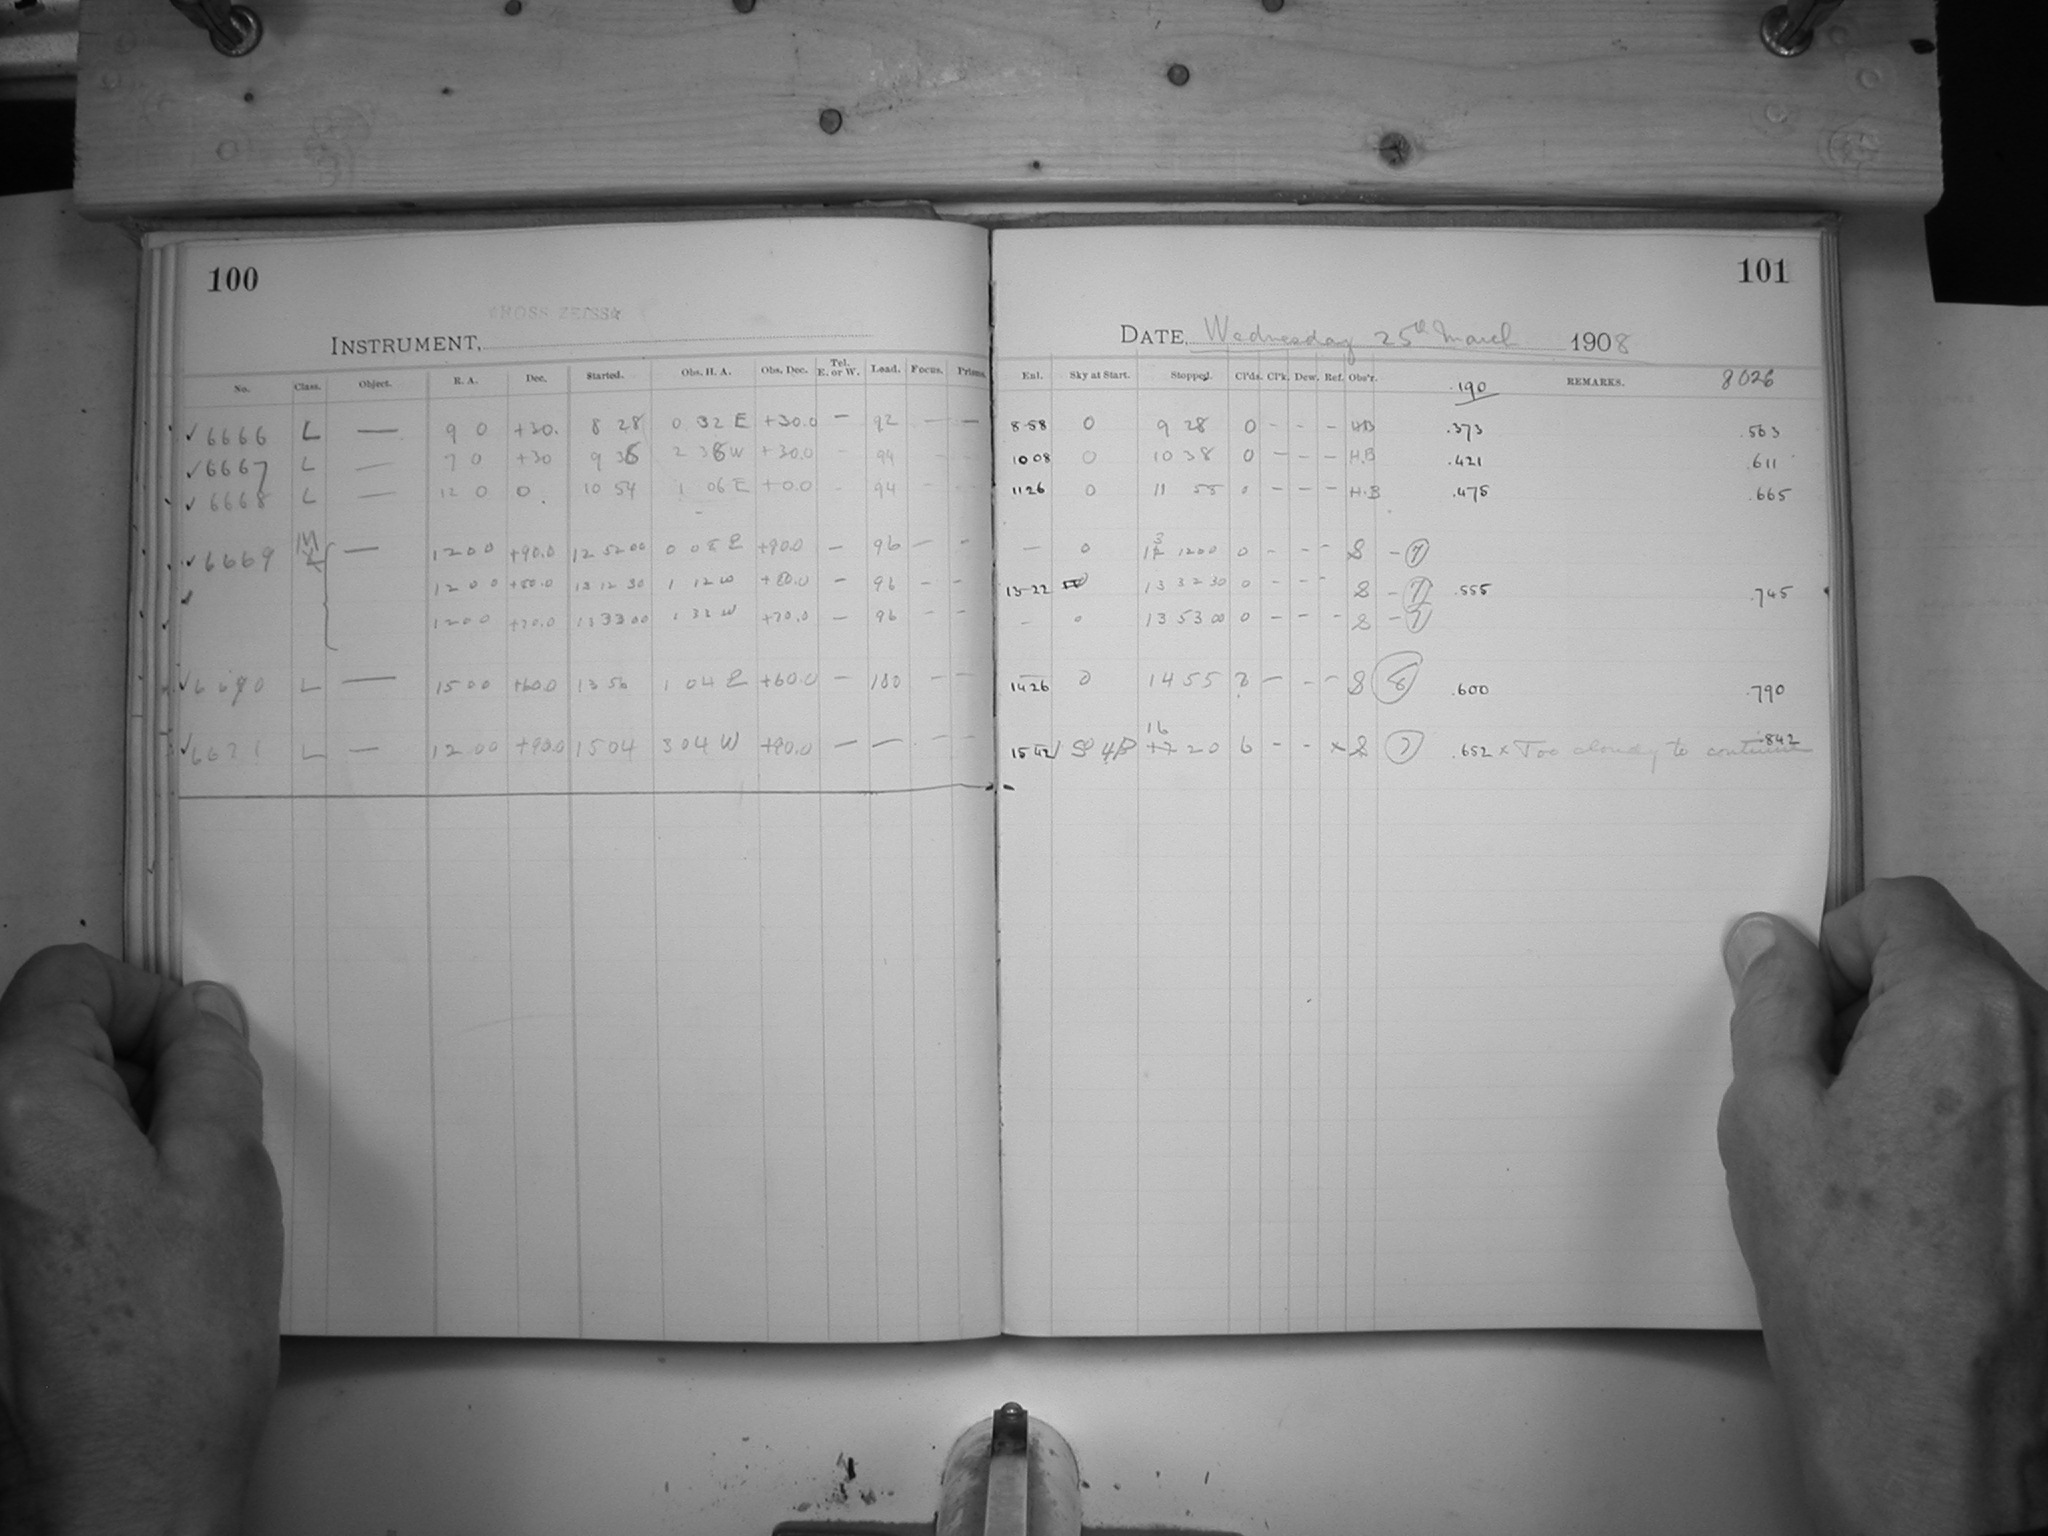 100
MOSS ZEISS
INSTRUMENT,
No. Class. Object. R. A. Dec. Started. Obs. H. A. Obs. Dec. Tel. E. or W. Load. Focus. Prisms.
✓6666 L — 9 0 +30. 8 28 0 32 E +30.0 — 92 — —
✓6667 L — 7 0 +30 9 36 2 36 W +30.0 - 94 - -
✓6668 L — 12 0 0. 10 54 1 06 E +0.0 - 94 - -
✓6669 M — 12 0 0 +90.0 12 52 00 0 08 E +90.0 — 96 — -
12 0 0 +80.0 13 12 30 1 12 W +80.0 — 96 — -
12 0 0 +70.0 13 33 00 1 32 W +70.0 — 96 — -
✓6670 L — 15 00 +60.0 13 56 1 04 E +60.0 — 100 — -
✓6671 L — 12 00 +90.0 15 04 3 04 W +90.0 — — - -
101
DATE, Wednesday 25th March 1908
Enl. Sky at Start. Stopped. Cl'ds. Cl'k. Dew. Ref. Obs'r. .190 REMARKS. 8026
8.58 0 9 28 0 - - - HB .373 .563
10 08 0 10 38 0 - - - H.B .421 .611
11 26 0 11 55 0 - - - H.B .475 .665
— 0 13 12 00 0 - - - S - 7
13-22 0 13 32 30 0 - - - S - 7 .555 .745
- 0 13 53 00 0 - - - S - 7
14 26 0 14 55 2 - - - S 8 .600 .790
15 42 16 20 6 - - × S 7 .652 × Too cloudy to continue .842